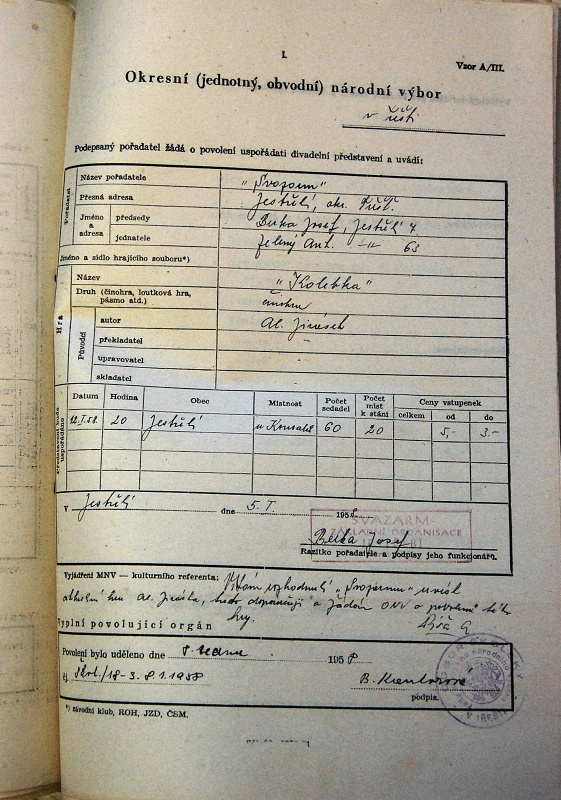 I.
Vzor A/III.
Okresní (jednotný, obvodní) národní výbor
v Třešti
Podepsaný pořadatel žádá o povolení uspořádati divadelní představení a uvádí:
Pořadatel
Název pořadatele "Svazarm"
Přesná adresa Jestřebí, okr. Třešť.
Jméno a adresa předsedy Belka Josef, Jestřebí 4.
jednatele Zelený Ant. -"- 63
Jméno a sídlo hrajícího souboru*)
Hra
Název "Kolébka"
Druh (činohra, loutková hra, pásmo atd.) činohra
Původci
autor Al. Jirásek
překladatel -
upravovatel
skladatel
Představení bude uspořádáno
Datum Hodina Obec Místnost Počet sedadel Počet míst k stání Ceny vstupenek celkem od do
12.I.58. 20 Jestřebí u 60 20 5,- 3.-
V Jestřebí dne 5.I. 1958.
SVAZARM
ZÁKLADNÍ ORGANISACE
Belka Josef
Razítko pořadatele a podpisy jeho funkcionářů.
Vyjádření MNV — kulturního referenta: Vítám rozhodnutí "Svazarmu"
hru Al. Jiráska, doporučuji a žádám ONV o povolení této
hry.
Vyplní povolující orgán
Povolení bylo uděleno dne 8. ledna 1958
čj. Škol./18-3. 8.1.1958
podpis.
V TŘEŠTI
*) národní klub, ROH, JZD, ČSM.